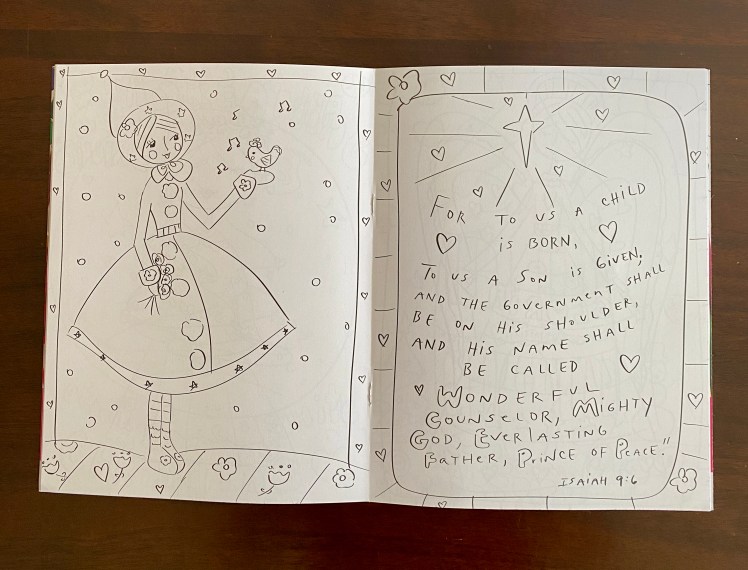 FOR TO US A CHILD
IS BORN,
TO US A SON IS GIVEN;
AND THE GOVERNMENT SHALL
BE ON HIS SHOULDER,
AND HIS NAME SHALL
BE CALLED
WONDERFUL
COUNSELOR, MIGHTY
GOD, EVERLASTING
FATHER, PRINCE OF PEACE."
ISAIAH 9:6